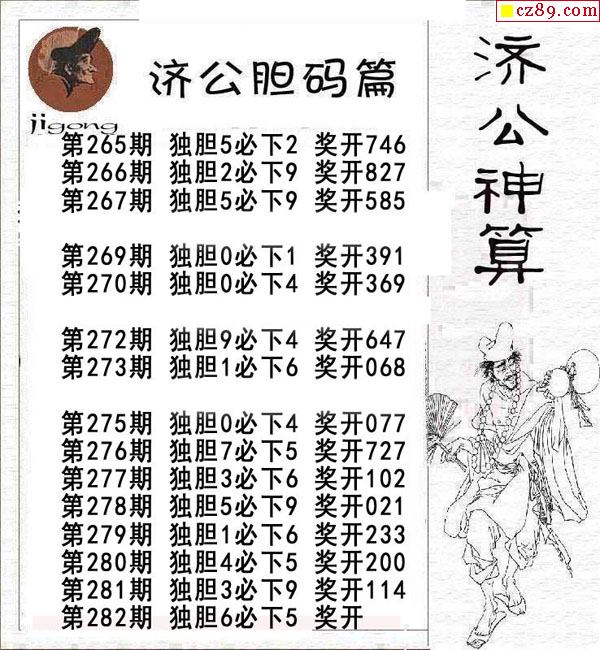 cz89.com
济公胆码篇
jigong
第265期 独胆5必下2 奖开746
第266期 独胆2必下9 奖开827
第267期 独胆5必下9 奖开585
第269期 独胆0必下1 奖开391
第270期 独胆0必下4 奖开369
第272期 独胆9必下4 奖开647
第273期 独胆1必下6 奖开068
第275期 独胆0必下4 奖开077
第276期 独胆7必下5 奖开727
第277期 独胆3必下6 奖开102
第278期 独胆5必下9 奖开021
第279期 独胆1必下6 奖开233
第280期 独胆4必下5 奖开200
第281期 独胆3必下9 奖开114
第282期 独胆6必下5 奖开
济公神算